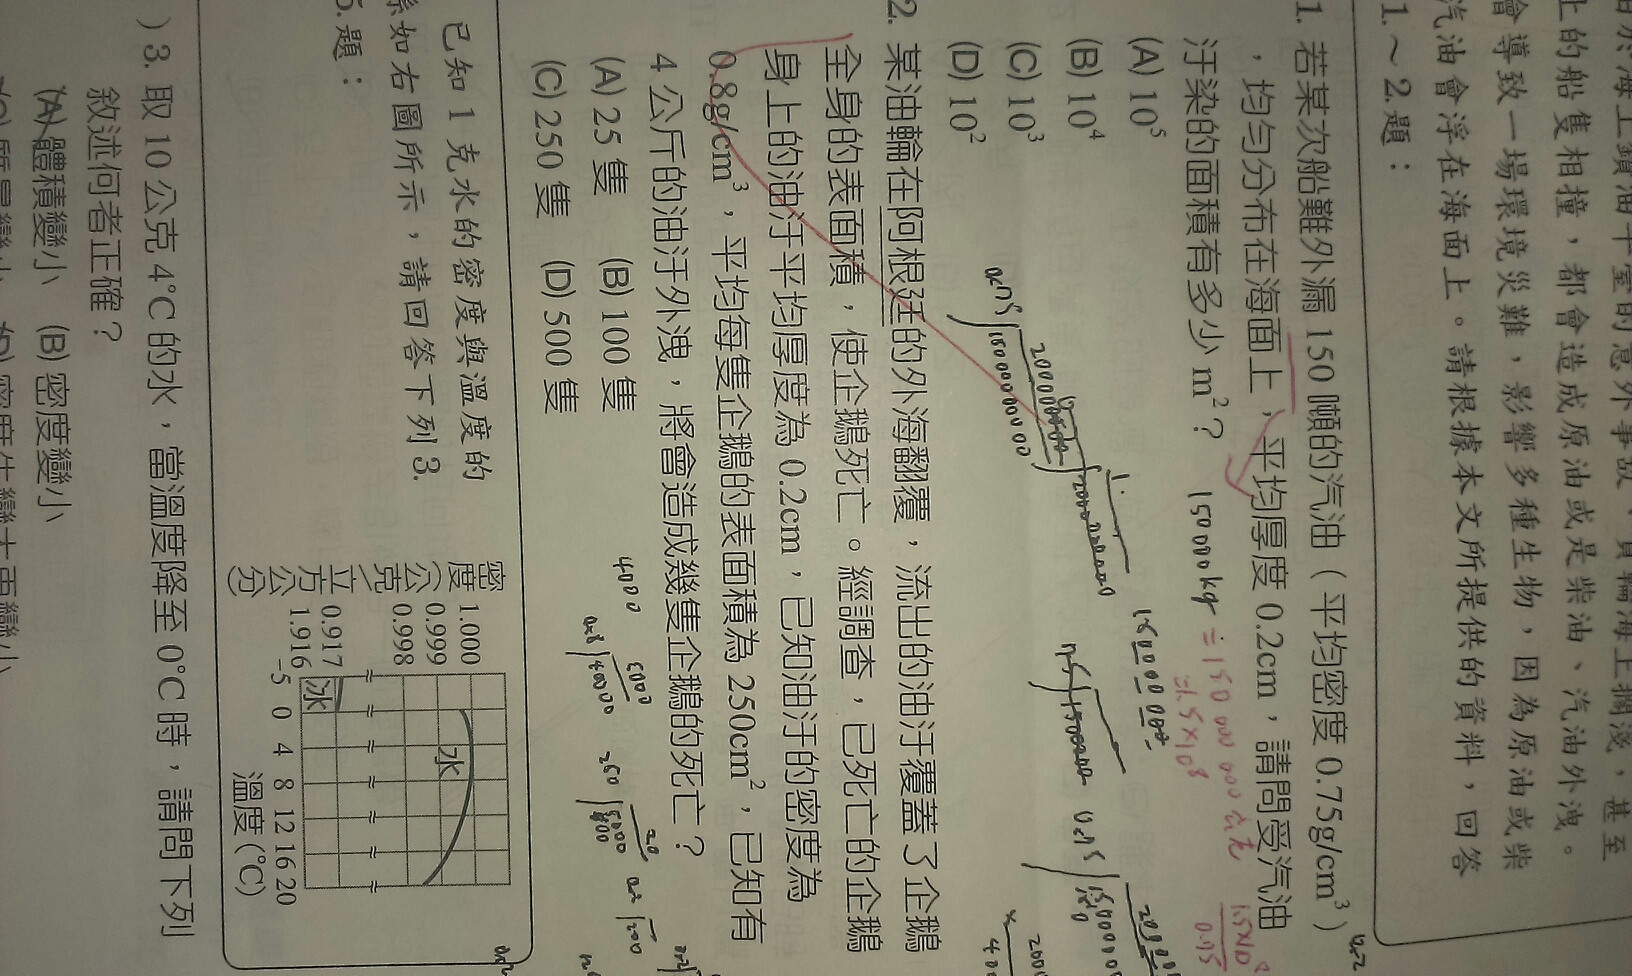 上的船隻相撞，都會造成原油或是柴油、汽油外洩。
會導致一場環境災難，影響多種生物，因為原油或柴
汽油會浮在海面上。請根據本文所提供的資料，回答
1.～2.題：
1. 若某次船難外漏 150 噸的汽油（平均密度 0.75g/cm³）
，均勻分布在海面上，平均厚度 0.2cm，請問受汽油
汙染的面積有多少 m²？
(A) 10⁵
(B) 10⁴
(C) 10³
(D) 10²
150000kg = 150 000 000 公克
=1.5×10⁸
2. 某油輪在阿根廷的外海翻覆，流出的油汙覆蓋了企鵝
全身的表面積，使企鵝死亡。經調查，已死亡的企鵝
身上的油汙平均厚度為 0.2cm，已知油汙的密度為
0.8g/cm³，平均每隻企鵝的表面積為 250cm²，已知有
4 公斤的油汙外洩，將會造成幾隻企鵝的死亡？
(A) 25 隻 (B) 100 隻
(C) 250 隻 (D) 500 隻
4000
5000
250
20
已知 1 克水的密度與溫度的
係如右圖所示，請回答下列 3.
5.題：
密度（公克／立方公分）
1.000
0.999
0.998
0.917
1.916
水
冰
-5 0 4 8 12 16 20
溫度(°C)
) 3. 取 10 公克 4°C 的水，當溫度降至 0°C 時，請問下列
敘述何者正確？
(A) 體積變小 (B) 密度變小